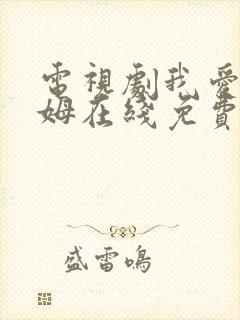 電視劇我愛
姆在綫免費
盛雷鳴